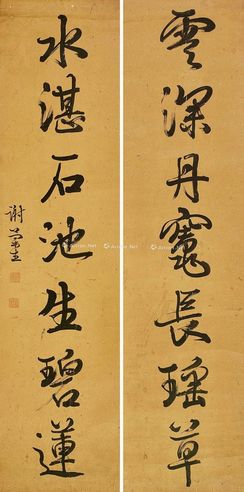 雲深丹竈長瑤草
水湛石池生碧蓮
謝蘭生